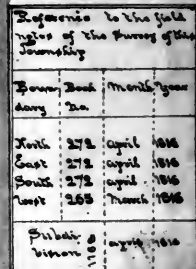 Reference to the field
notes of the Survey of this
Township
Boun Book Month Year
dary No.
North 272 april 1816
East 272 april 1816
South 272 april 1816
West 265 March 1816
Subdi april 1816
vision